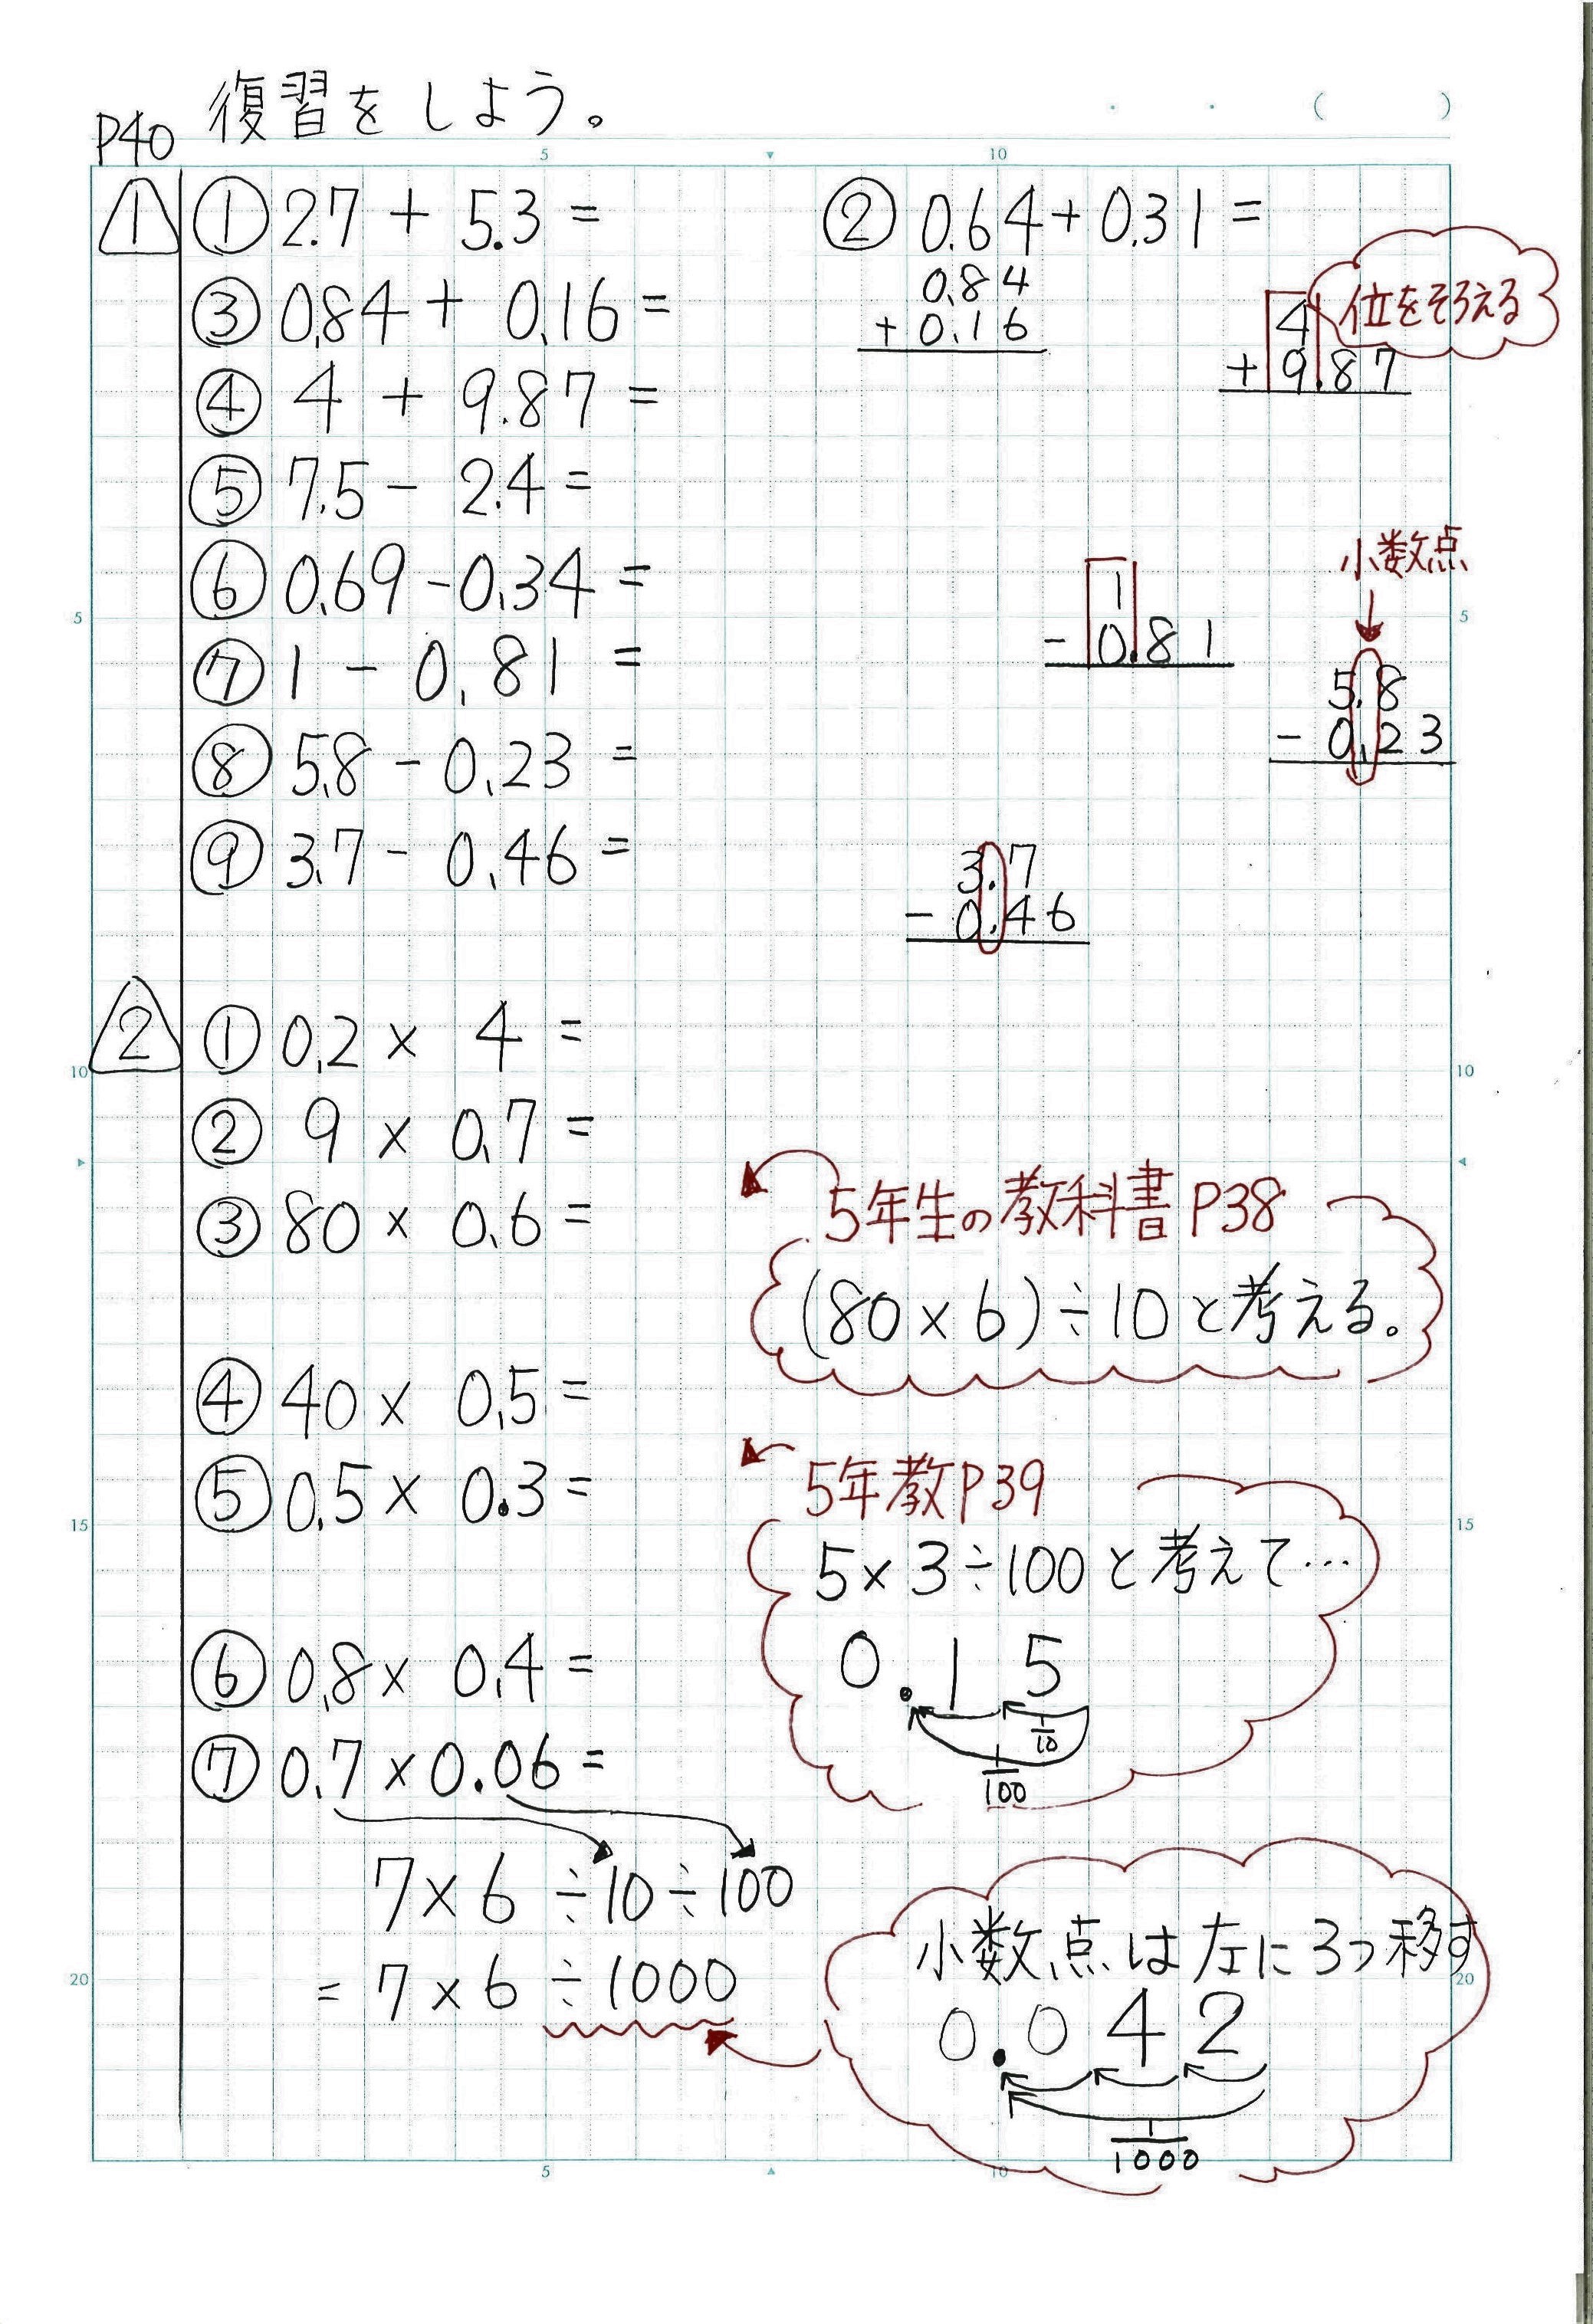 復習をしよう。
P40
( )
5 10
1 ① 2.7 + 5.3 =
② 0.64 + 0.31 =
③ 0.84 + 0.16 =
0.84
+ 0.16
位をそろえる
4
+ 9.87
④ 4 + 9.87 =
⑤ 7.5 - 2.4 =
小数点
⑥ 0.69 - 0.34 =
1
- 0.81
5 5
⑦ 1 - 0.81 =
5.8
- 0.23
⑧ 5.8 - 0.23 =
⑨ 3.7 - 0.46 =
3.7
- 0.46
2 ① 0.2 × 4 =
10 10
② 9 × 0.7 =
③ 80 × 0.6 =
5年生の教科書 P38
(80×6)÷10と考える。
④ 40 × 0.5 =
5年教P39
⑤ 0.5 × 0.3 =
15 15
5×3÷100と考えて…
0.15
1/10
1/100
⑥ 0.8 × 0.4 =
⑦ 0.7 × 0.06 =
7×6÷10÷100
= 7×6÷1000
小数点は左に3つ移す
20 20
0.042
1/1000
5 10